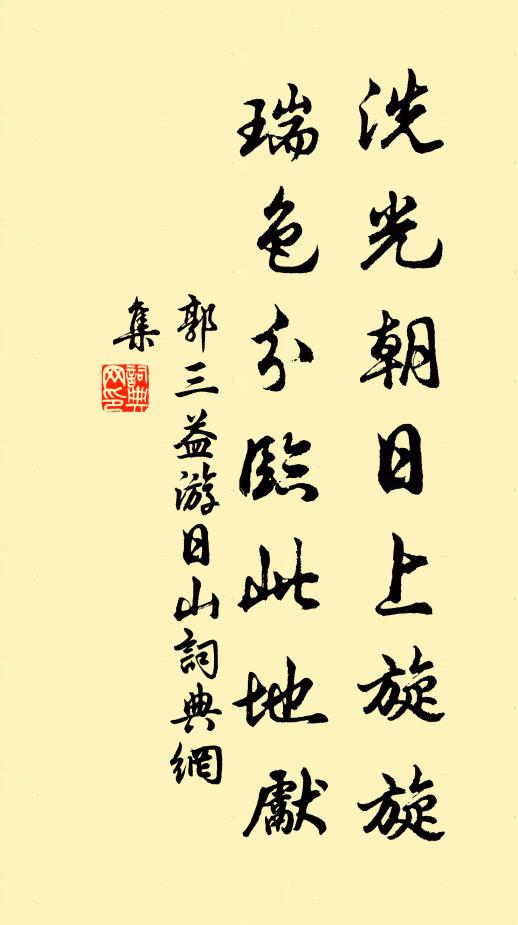 洗光朝日上旋旋
瑞色分臨此地獻
郭三益游日山詞典網
集
詞典
网印